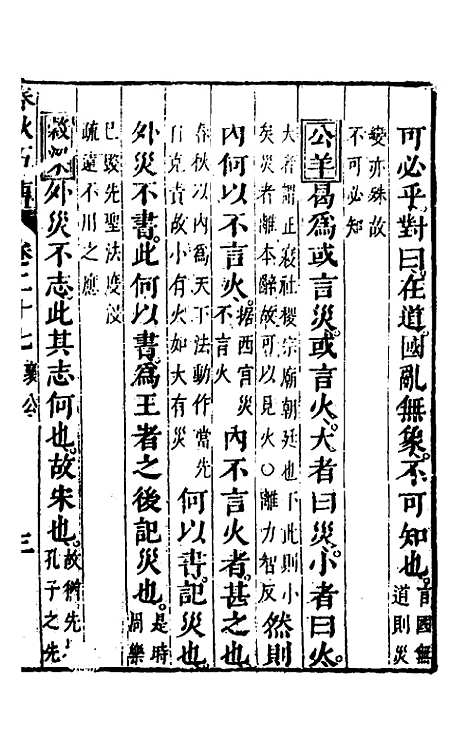 可必乎對曰在道國亂無象不可知也言國無道則災
變亦殊故不可必知
公羊曷為或言災或言火大者曰災小者曰火
大者謂正寢社稷宗廟朝廷也下此則小
矣災者離本辭故可以見火○離力智反
然則
內何以不言火據西宮災不言火內不言火者甚之也
春秋以內為天下法動作當先
自克責故小有火如大有災
何以書記災也
外災不書此何以書為王者之後記災也是時周樂
已毀先聖法度浸
疏遠不用之應
穀梁外災不志此其志何也故宋也故猶先也孔子之先
春秋
傳
卷二十七
襄公
三